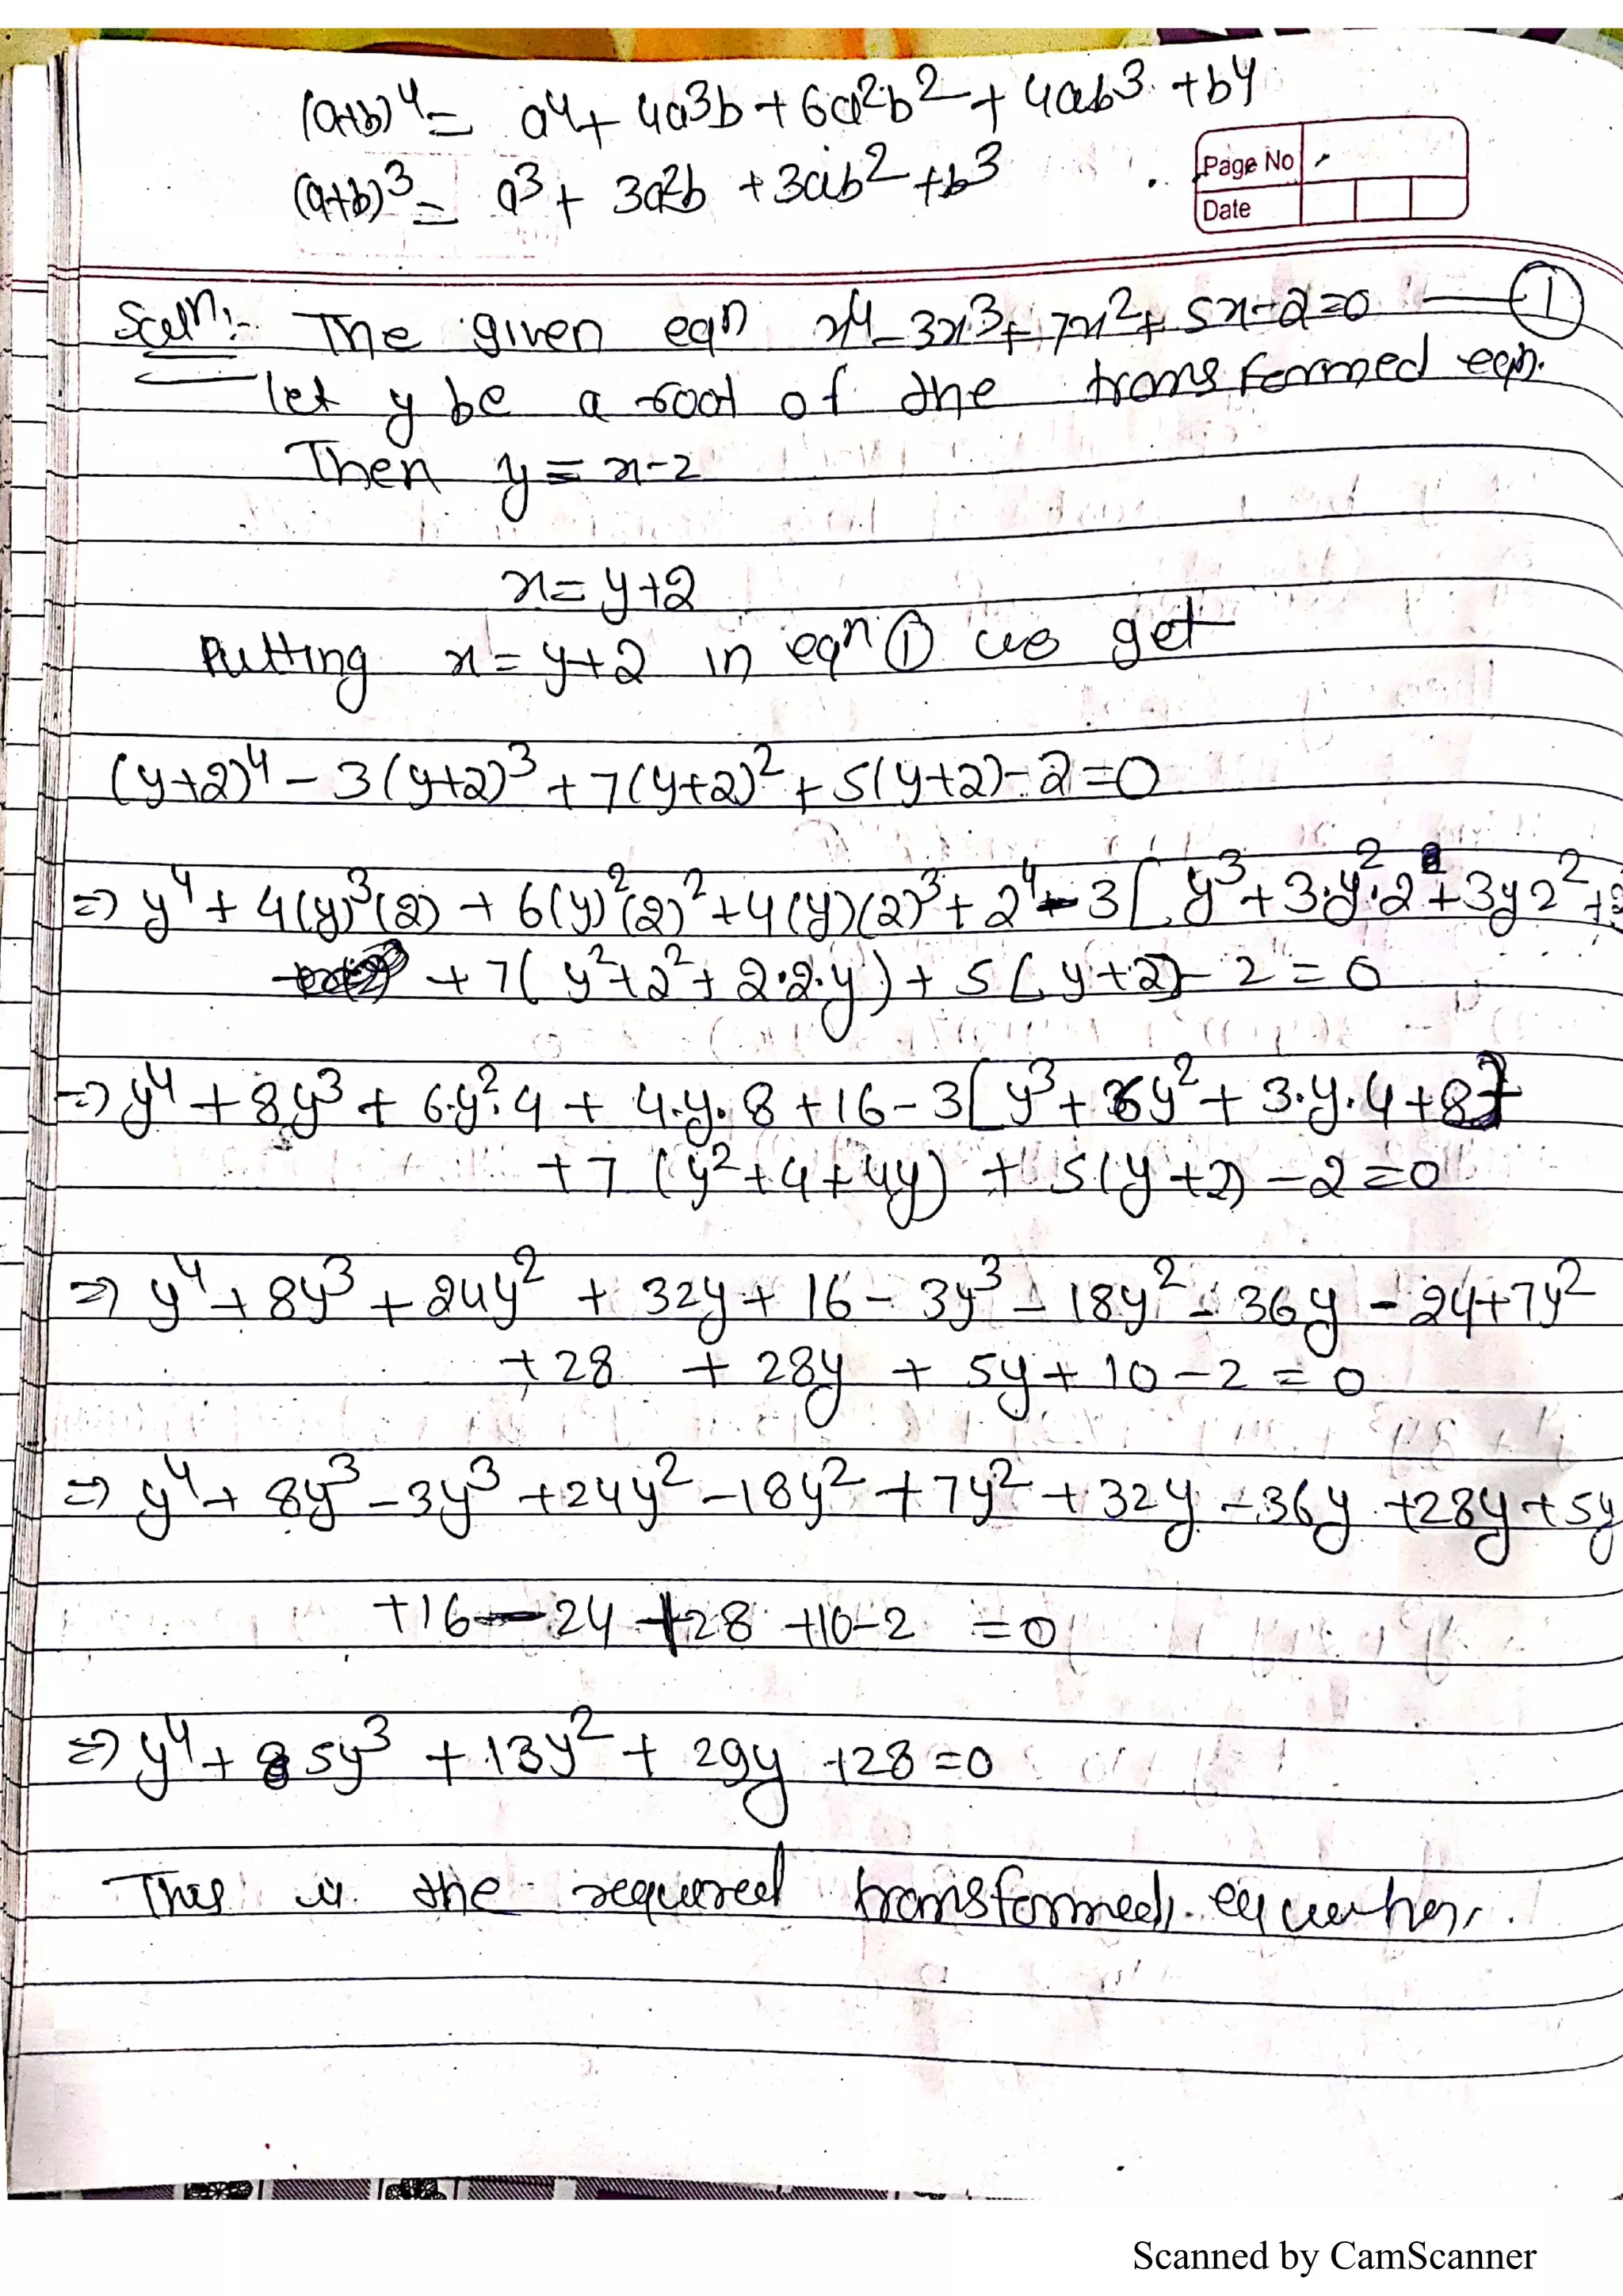 (a+b)⁴ = a⁴ + 4a³b + 6a²b² + 4ab³ + b⁴
(a+b)³ = a³ + 3a²b + 3ab² + b³
Page No
Date
Soln:- The given eqn x⁴ - 3x³ + 7x² + 5x - 2 = 0 — ①
let y be a root of the transformed eqn.
Then y = x-2
x = y+2
Putting x = y+2 in eqn ① we get
(y+2)⁴ - 3(y+2)³ + 7(y+2)² + 5(y+2) - 2 = 0
⇒ y⁴ + 4(y)³(2) + 6(y)²(2)² + 4(y)(2)³ + 2⁴ - 3[y³ + 3·y²·2 + 3y2² +
+ 7(y² + 2² + 2·2·y) + 5[y+2] - 2 = 0
⇒ y⁴ + 8y³ + 6·y²·4 + 4·y·8 + 16 - 3[y³ + 6y² + 3·y·4 + 8]
+ 7(y² + 4 + 4y) + 5(y+2) - 2 = 0
⇒ y⁴ + 8y³ + 24y² + 32y + 16 - 3y³ - 18y² - 36y - 24 + 7y²
+ 28 + 28y + 5y + 10 - 2 = 0
⇒ y⁴ + 8y³ - 3y³ + 24y² - 18y² + 7y² + 32y - 36y + 28y + 5y
+16 - 24 + 28 + 10 - 2 = 0
⇒ y⁴ + 5y³ + 13y² + 29y + 28 = 0
This is the required transformed equation.
Scanned by CamScanner